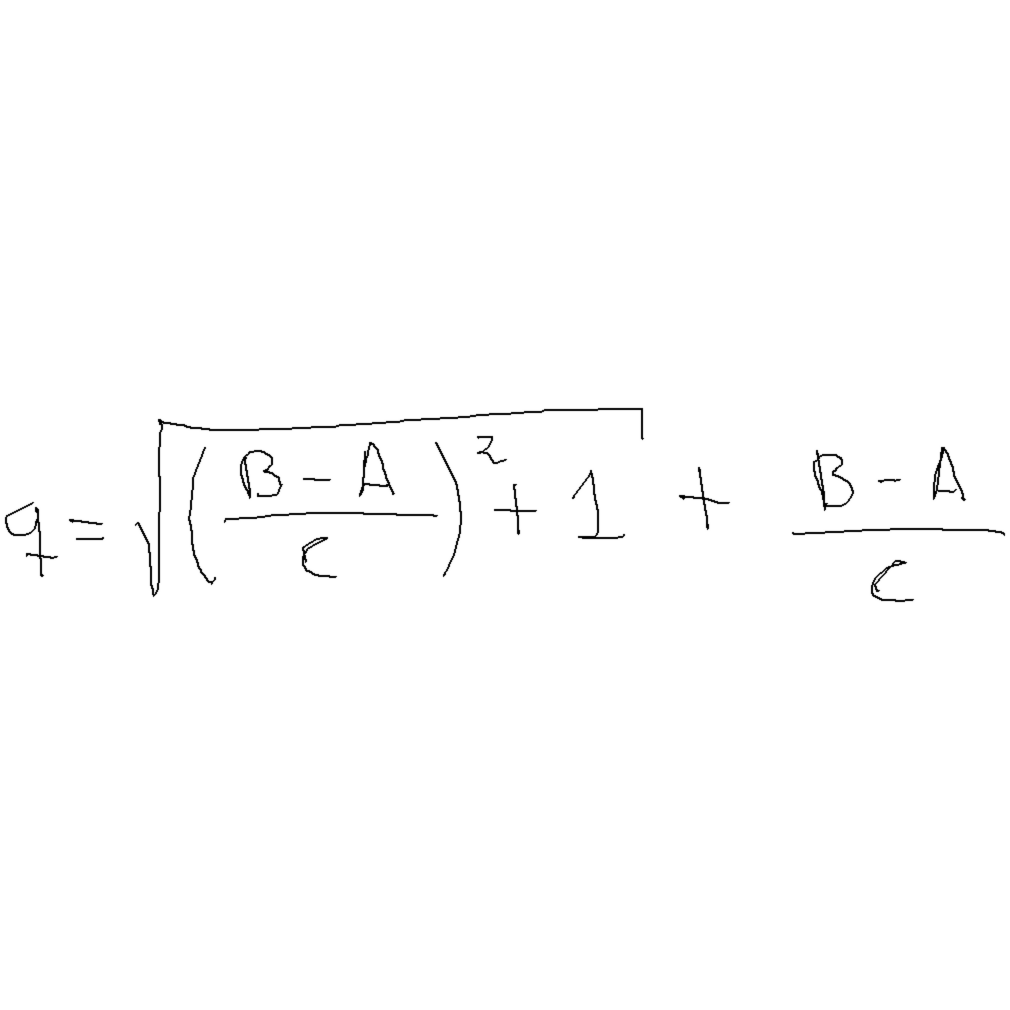 q = √((B - A)/C)² + 1) + (B - A)/C